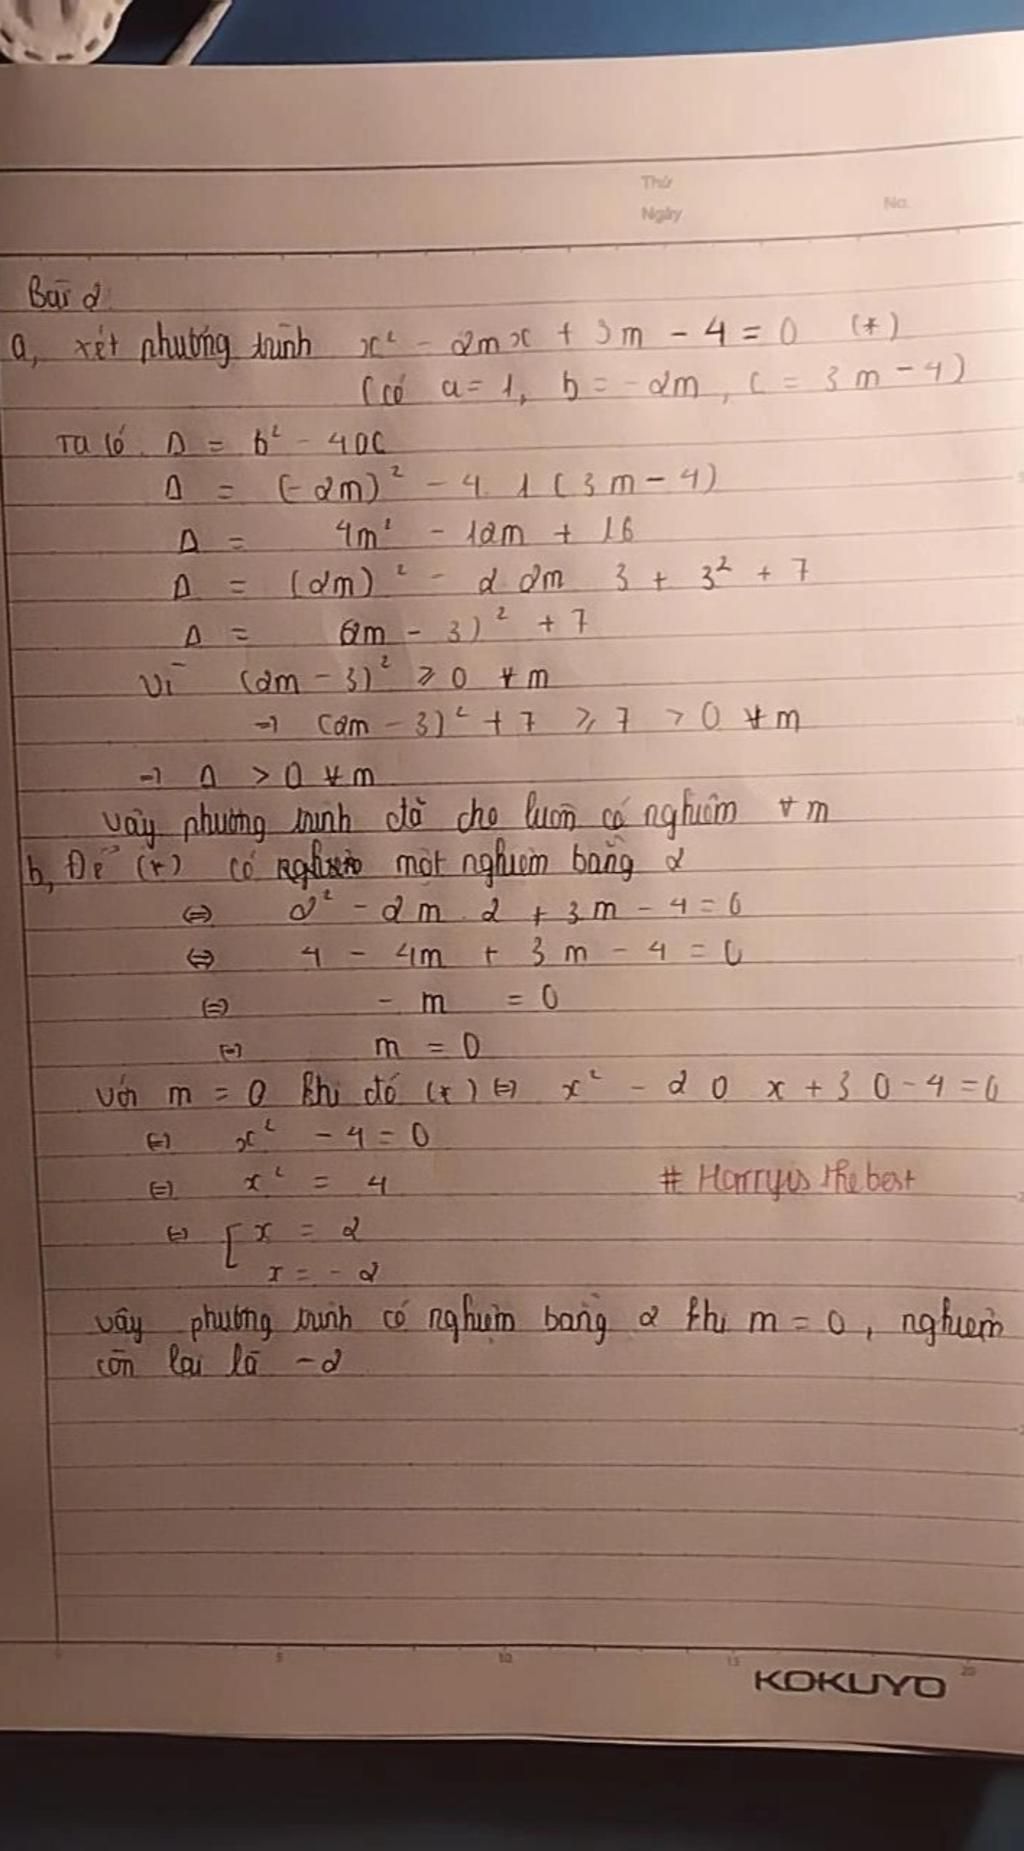 Thứ
Ngày
No.
Bài 2
a, xét phương trình x² - 2mx + 3m - 4 = 0 (*)
(có a = 1, b = -2m, c = 3m - 4)
Ta có. Δ = b² - 4ac
Δ = (-2m)² - 4.1(3m - 4)
Δ = 4m² - 12m + 16
Δ = (2m)² - 2.2m.3 + 3² + 7
Δ = (2m - 3)² + 7
Vì (2m - 3)² ≥ 0 ∀m
⇒ (2m - 3)² + 7 ≥ 7 > 0 ∀m
⇒ Δ > 0 ∀m
vậy phương trình đã cho luôn có nghiệm ∀m
b, Để (*) có một nghiệm bằng 2
⇔ 2² - 2m.2 + 3m - 4 = 0
⇔ 4 - 4m + 3m - 4 = 0
⇔ -m = 0
⇔ m = 0
với m = 0 khi đó (*) ⇔ x² - 2.0.x + 3.0 - 4 = 0
⇔ x² - 4 = 0
⇔ x² = 4
# Harryis the best
⇔ [ x = 2
x = -2
vậy phương trình có nghiệm bằng 2 khi m = 0, nghiệm
còn lại là -2
5 10 15 20
KOKUYO